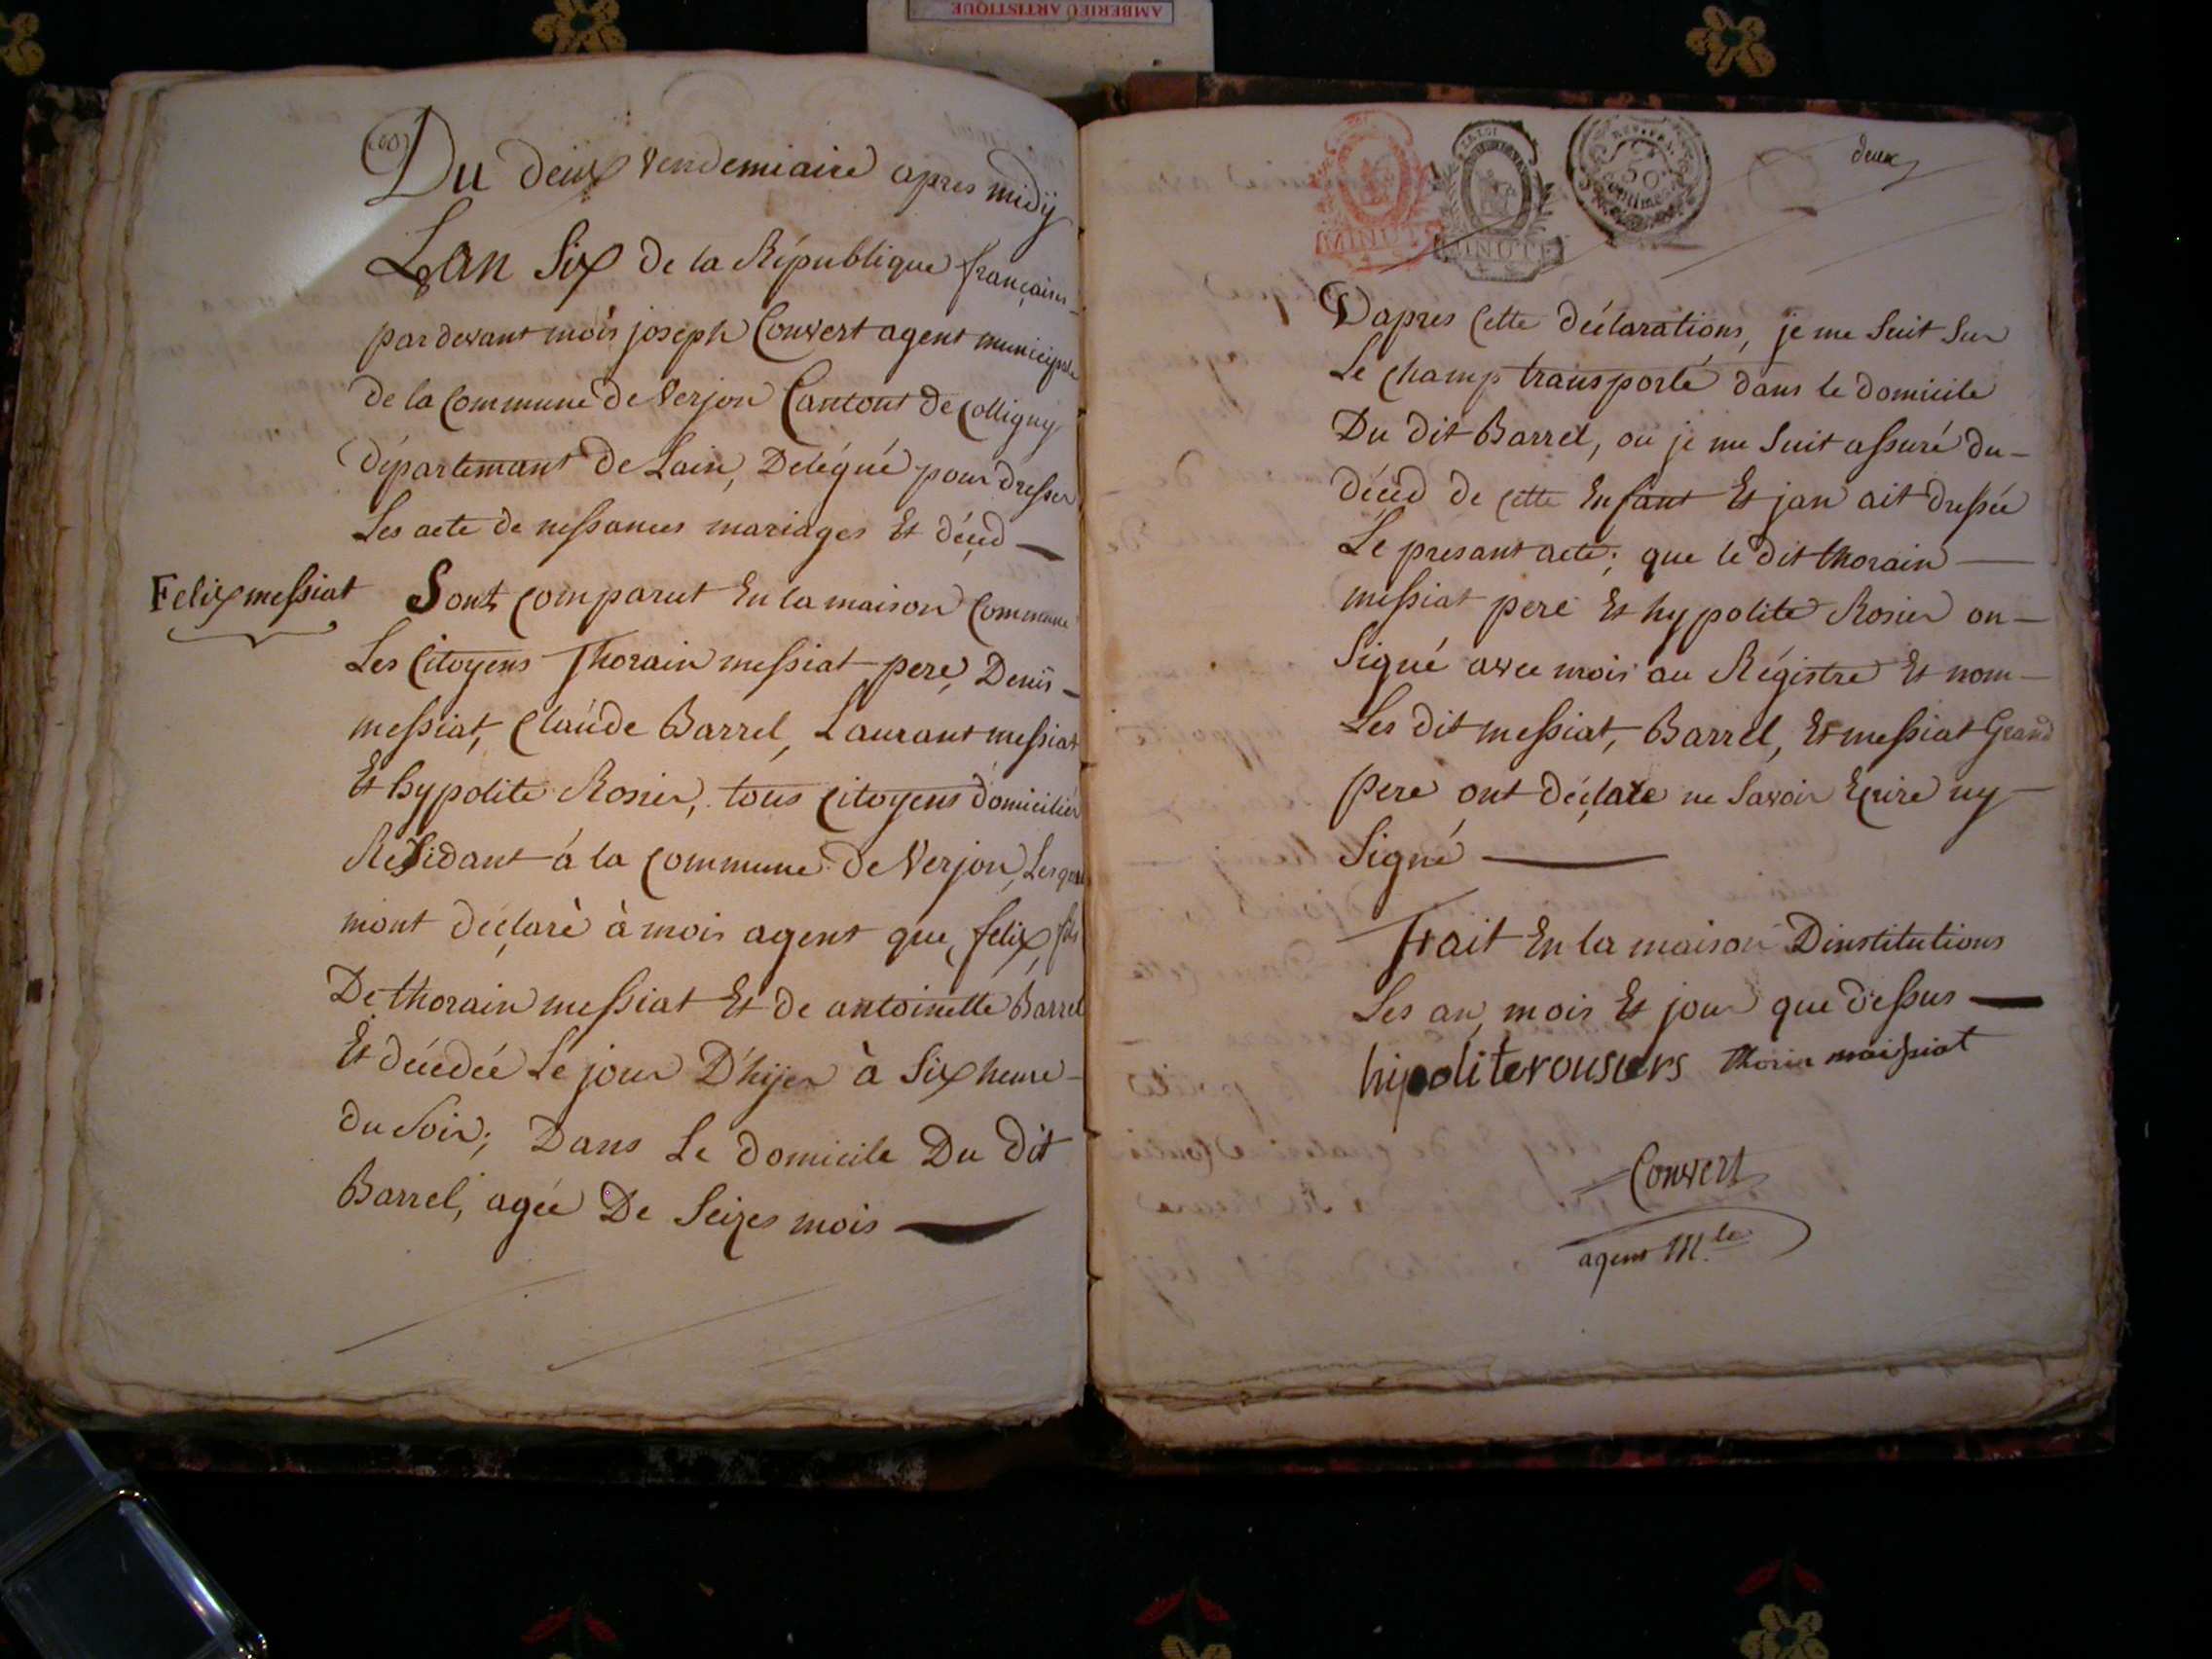 AMBERIEU ARTISTIQUE
Du deux vendemiaire apres midÿ
Lan Six de la République française
par devant mois joseph Convert agent municipale
de la Commune de Verjon Cantont de Colligny
département de Lain, Delégué pour dresser
Les acte de nessances mariages Et décéd
Felix messiat
Sont comparut En la maison Commune
Les Citoyens Thorain messiat pere, Denis
messiat, Claude Barrel, Laurant messiat
Et hypolite Rosier, tous Citoyens domicilier
Résidant á la commune de Verjon, Lesquel
mont déclarè à mois agent que, felix, fils
De thorain messiat Et de antoinette Barrel
Et décedée Le jour D'hijer à Six heure
du Soir; Dans Le domicile Du dit
Barrel, agée De Seizes mois
MINUTE
LA LOI
MINUTE
50
centimes
deux
Dapres Cette déclarations, je me Suit Sur
Le Champ transporté dans le domicile
Du dit Barrel, ou je me Suit assuré du
décéd de cette Enfant Et jan ait dressée
Le presant acte; que le dit thorain
messiat pere Et hypolite Rosier on
Signé avec mois au Régistre Et nom
Les dit messiat, Barrel, Et messiat Grand
Pere ont déclare ne Savoir Ecrire ny
Signé
Frait En la maison Dinstitutions
Les an, mois Et jour que dessus
hipoliterousiers Thorin maissiat
Convert
agent M.le